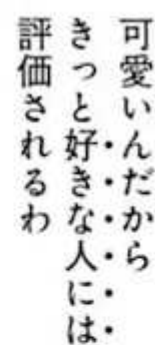 可愛いんだから
きっと好きな人には
評価されるわ